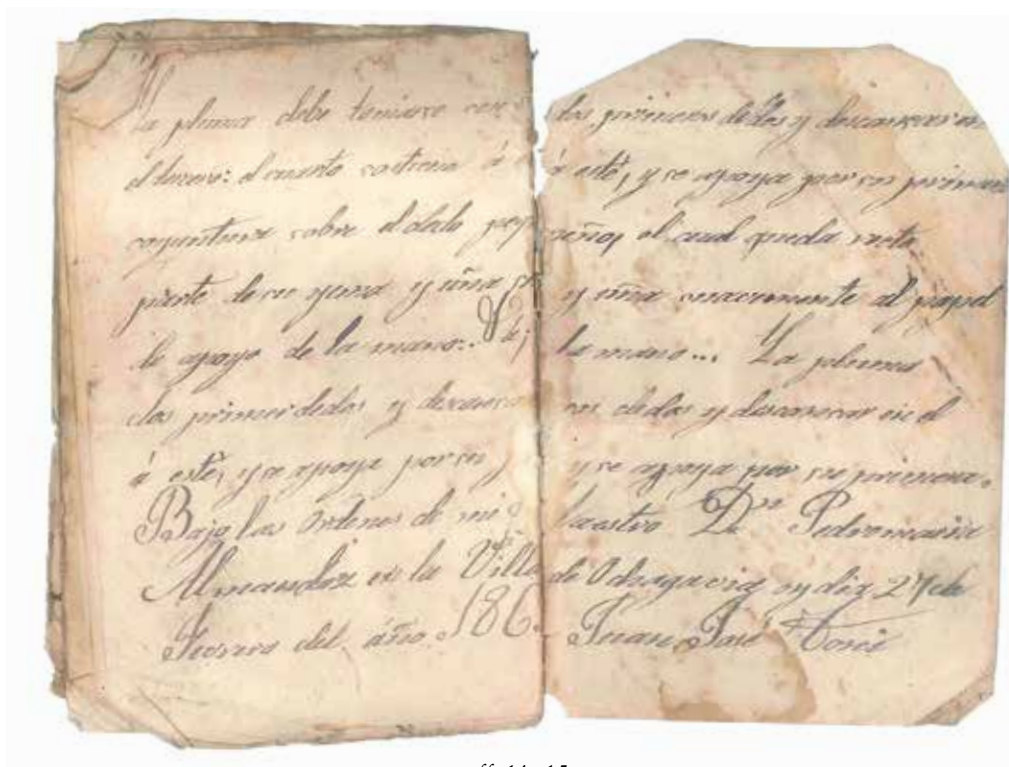 La pluma debe tenerse con
el tercero: el cuarto sostiene á
coyuntura sobre el dedo peq
parte de su yema y uña
le apoyo de la mano:.
los primer dedos y descansar
á este, y se apoya por su
Bajo las ordenes de mi
Almandoz en la Villa
Febrero del año 186
los primeros dedos y descansar en
á este, y se apoya por su primera
ueño, el cual queda
y uña suavemente al papel
la mano... La pluma
os dedos y descansar en el
y se apoya por su primera.
Maestro Dn Pedromaria
de Ochagavia oy dia 27 de
Juan José
ff. 14-15